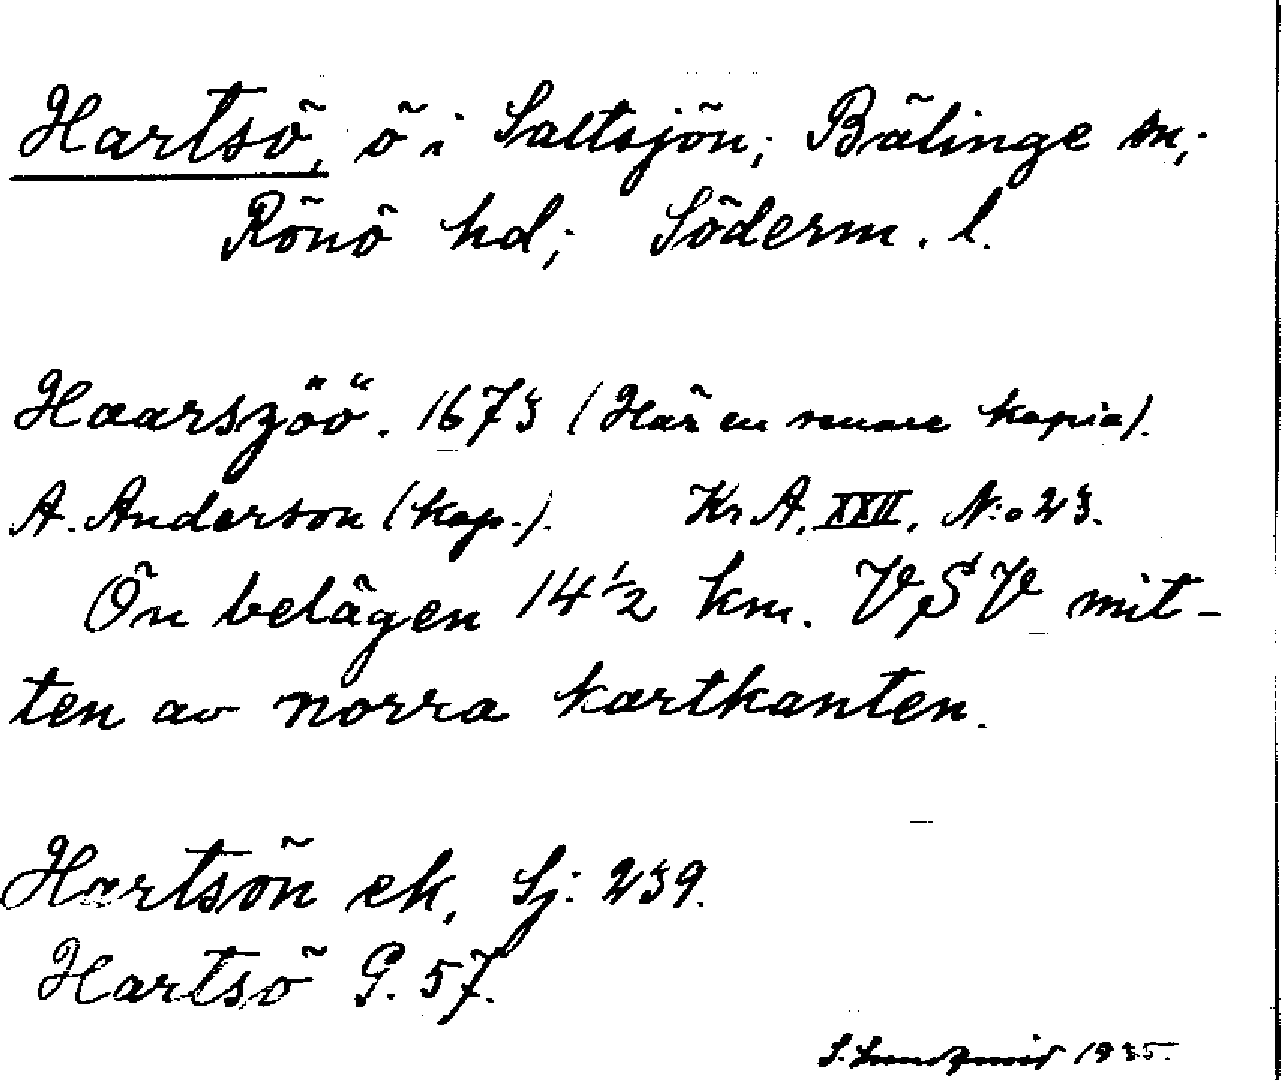 Hartsö, ö i Saltsjön; Bälinge sn;
Rönö hd; Söderm. l.
Haarszöö. 1673 (Här en senare kopia).
A. Anderson (kop.). Kr. A. XXII. N:o 23.
Ön belägen 14 1/2 km. VSV mit-
ten av norra kartkanten.
Hartsön ek. Sj: 239.
Hartsö G. 57.
S. Lundqvist 1935.